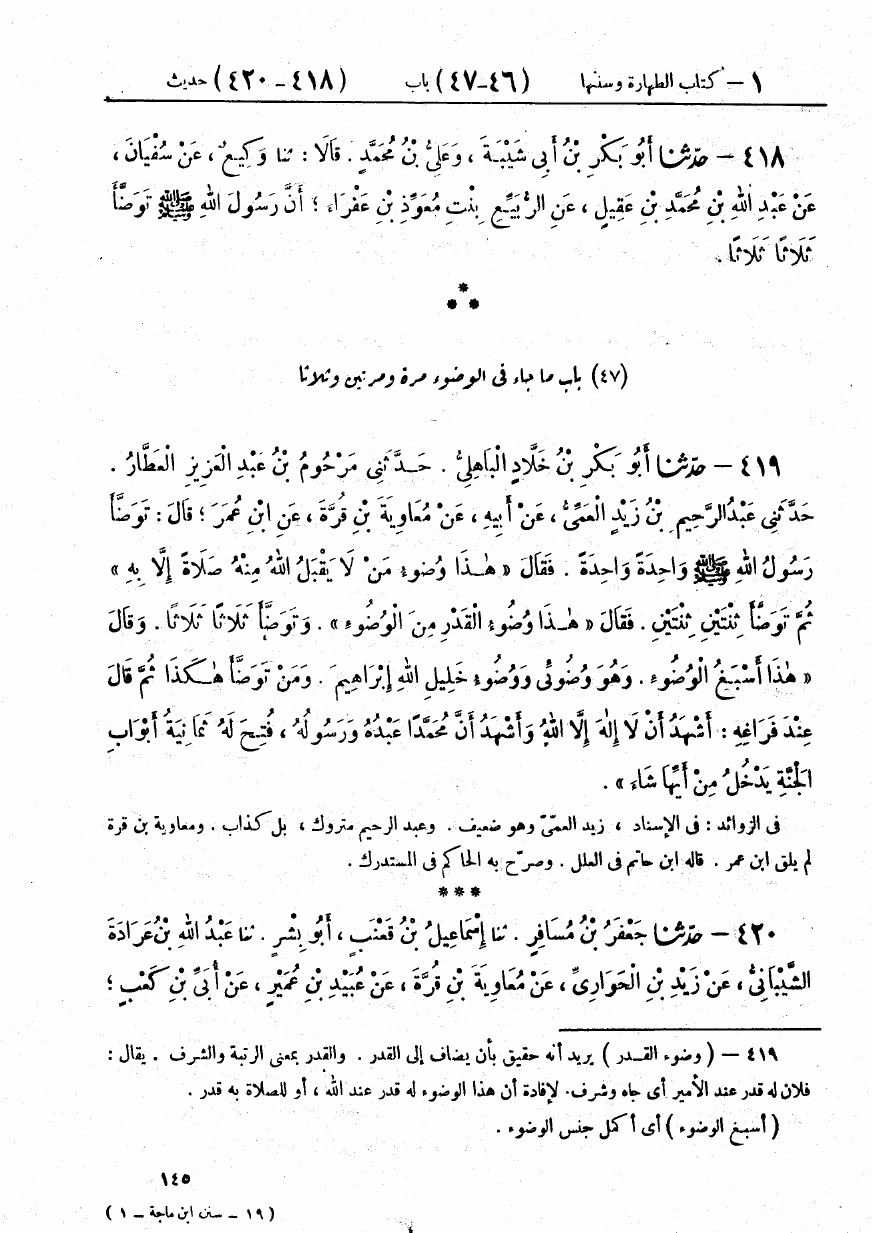 ١ – كتاب الطهارة وسننها (٤٦-٤٧) باب (٤١٨ - ٤٢٠) حديث
٤١٨ – حَدَّثَنَا أَبُو بَكْرِ بْنُ أَبِي شَيْبَةَ ، وَعَلِيُّ بْنُ مُحَمَّدٍ . قَالَا : ثنا وَكِيعٌ ، عَنْ سُفْيَانَ ،
عَنْ عَبْدِ اللهِ بْنِ مُحَمَّدِ بْنِ عَقِيلٍ ، عَنِ الرُّبَيِّعِ بِنْتِ مُعَوِّذِ بْنِ عَفْرَاءَ ؛ أَنَّ رَسُولَ اللهِ ﷺ تَوَضَّأَ
ثَلَاثًا ثَلَاثًا .
***
(٤٧) باب ما جاء فى الوضوء مرة ومرتين وثلاثا
٤١٩ – حَدَّثَنَا أَبُو بَكْرِ بْنُ خَلَّادٍ الْبَاهِلِيُّ . حَدَّثَنِى مَرْحُومُ بْنُ عَبْدِ الْعَزِيزِ الْعَطَّارُ .
حَدَّثَنِى عَبْدُ الرَّحِيمِ بْنُ زَيْدٍ الْعَمِّىُّ ، عَنْ أَبِيهِ ، عَنْ مُعَاوِيَةَ بْنِ قُرَّةَ ، عَنِ ابْنِ عُمَرَ ؛ قَالَ : تَوَضَّأَ
رَسُولُ اللهِ ﷺ وَاحِدَةً وَاحِدَةً . فَقَالَ « هٰذَا وُضُوءُ مَنْ لَا يَقْبَلُ اللهُ مِنْهُ صَلَاةً إِلَّا بِهِ »
ثُمَّ تَوَضَّأَ ثِنْتَيْنِ ثِنْتَيْنِ . فَقَالَ « هٰذَا وُضُوءُ الْقَدْرِ مِنَ الْوُضُوءِ » . وَتَوَضَّأَ ثَلَاثًا ثَلَاثًا . وَقَالَ
« هٰذَا أَسْبَغُ الْوُضُوءِ . وَهُوَ وُضُوئِى وَوُضُوءُ خَلِيلِ اللهِ إِبْرَاهِيمَ . وَمَنْ تَوَضَّأَ هٰكَذَا ثُمَّ قَالَ
عِنْدَ فَرَاغِهِ : أَشْهَدُ أَنْ لَا إِلٰهَ إِلَّا اللهُ وَأَشْهَدُ أَنَّ مُحَمَّدًا عَبْدُهُ وَرَسُولُهُ ، فُتِحَ لَهُ ثَمَانِيَةُ أَبْوَابِ
الْجَنَّةِ يَدْخُلُ مِنْ أَيِّهَا شَاءَ » .
فى الزوائد : فى الإسناد ، زيد العمىّ وهو ضعيف . وعبد الرحيم متروك ، بل كذاب . ومعاوية بن قرة
لم يلق ابن عمر . قاله ابن حاتم فى العلل . وصرّح به الحاكم فى المستدرك .
***
٤٢٠ – حَدَّثَنَا جَعْفَرُ بْنُ مُسَافِرٍ . ثنا إِسْمَاعِيلُ بْنُ قَعْنَبٍ ، أَبُو بِشْرٍ . ثنا عَبْدُ اللهِ بْنُ عَرَادَةَ
الشَّيْبَانِىُّ ، عَنْ زَيْدِ بْنِ الْحَوَارِىِّ ، عَنْ مُعَاوِيَةَ بْنِ قُرَّةَ ، عَنْ عُبَيْدِ بْنِ عُمَيْرٍ ، عَنْ أُبَىِّ بْنِ كَعْبٍ ؛
٤١٩ – ( وضوء القدر ) يريد أنه حقيق بأن يضاف إلى القدر . والقدر بمعنى الرتبة والشرف . يقال :
فلان له قدر عند الأمير أى جاه وشرف . لإفادة أن هذا الوضوء له قدر عند الله ، أو للصلاة به قدر .
( أسبغ الوضوء ) أى أكمل جنس الوضوء .
١٤٥
( ١٩ – سنن ابن ماجة – ١ )